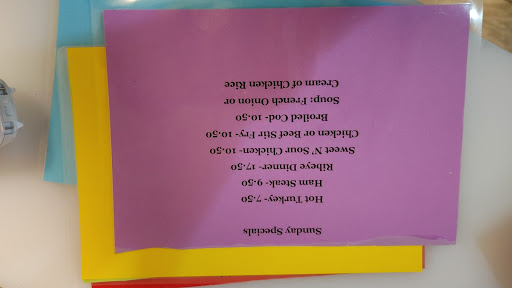 Sunday Specials
Hot Turkey- 7.50
Ham Steak- 9.50
Ribeye Dinner- 17.50
Sweet N' Sour Chicken- 10.50
Chicken or Beef Stir Fry- 10.50
Broiled Cod- 10.50
Soup: French Onion or
Cream of Chicken Rice